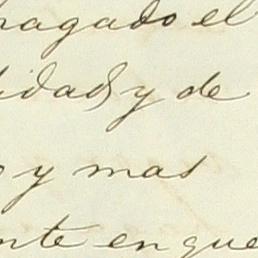 hagado el
idad y de
o y mas
nte en que